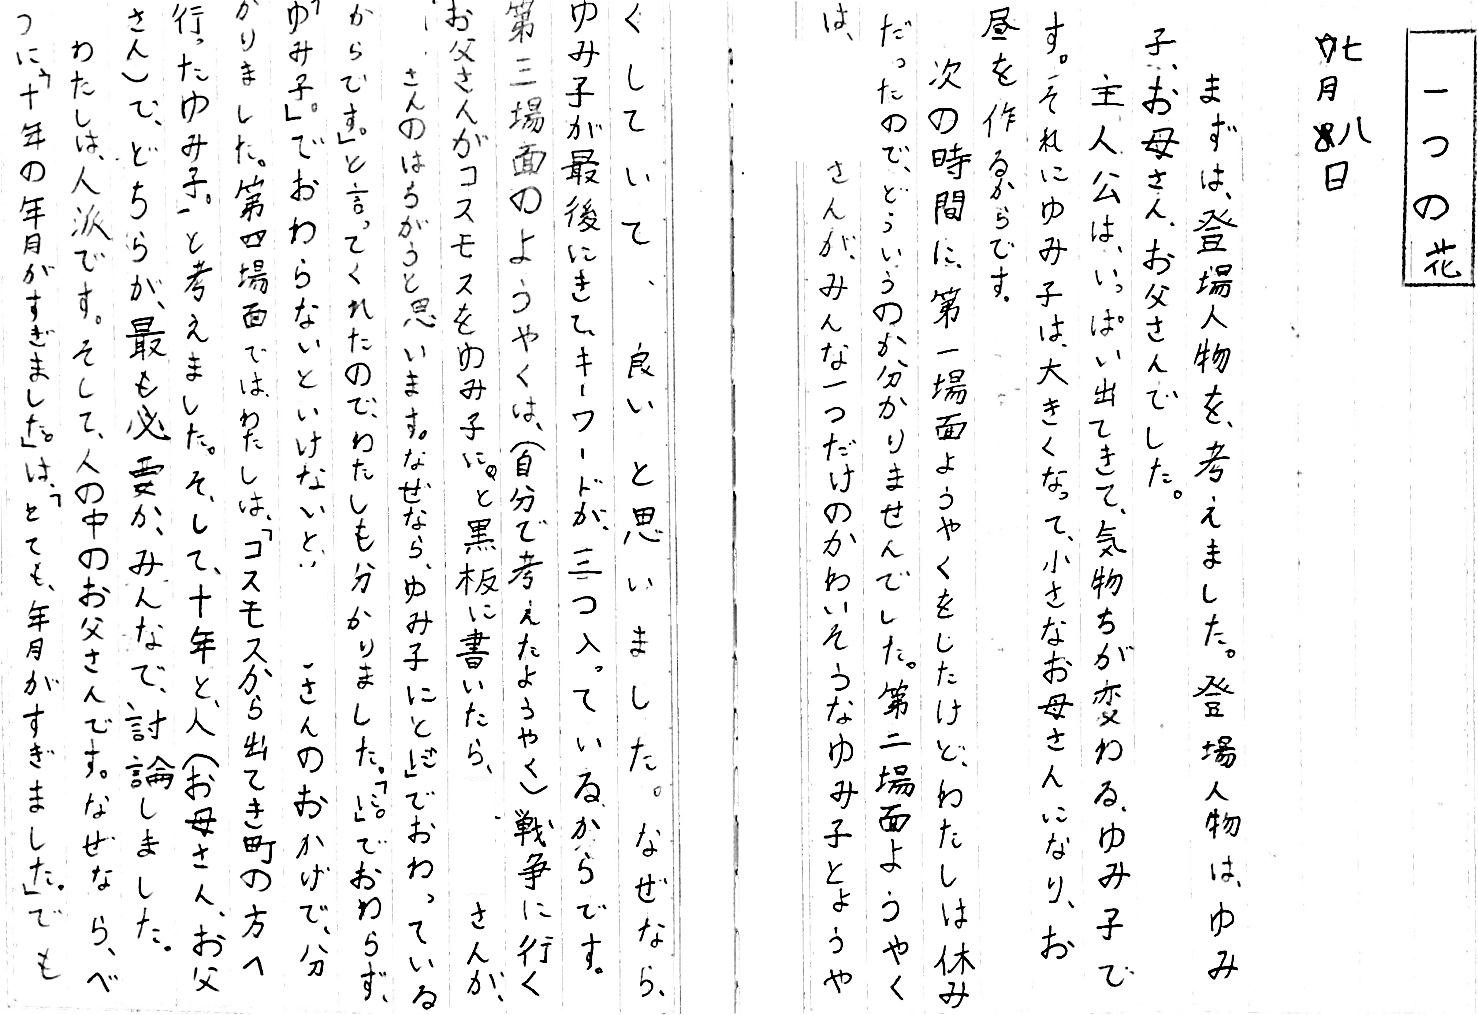 一つの花
七月八日
まずは、登場人物を、考えました。登場人物は、ゆみ
子、お母さん、お父さんでした。
主人公は、いっぱい出てきて、気物ちが変わる、ゆみ子で
す。それにゆみ子は、大きくなって、小さなお母さんになり、お
昼を作るからです。
次の時間に、第一場面ようやくをしたけど、わたしは休み
だったので、どういうのか、分かりませんでした。第二場面ようやく
は、 さんが、みんな一つだけのかわいそうなゆみ子とようや
くしていて、良いと思いました。なぜなら、
ゆみ子が最後にきて、キーワードが、三つ入っているからです。
第三場面のようやくは、(自分で考えたようやく)戦争に行く
お父さんがコスモスをゆみ子に。と黒板に書いたら、 さんが、
さんのはちがうと思います。なぜなら、ゆみ子にと」でおわっている
からです。」と言ってくれたので、わたしも分かりました。「に。」でおわらず、
ゆみ子。」でおわらないといけないと、 さんのおかげで、分
かりました。第四場面では、わたしは、「コスモスから出てき町の方へ
行ったゆみ子。」と考えました。そして、十年と、人(お母さん、お父
さん)で、どちらが、最も必要か、みんなで、討論しました。
わたしは、人派です。そして、人の中のお父さんです。なぜなら、べ
つに、「十年の年月がすぎました。」は、「とても、年月がすぎました。」でも